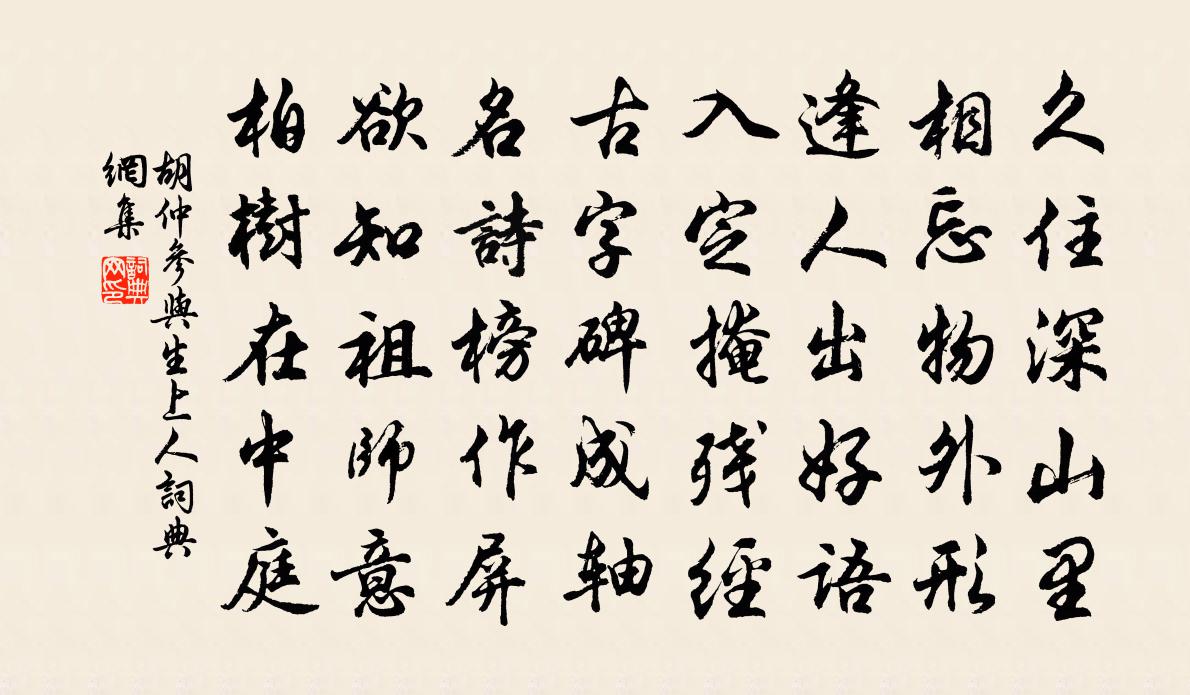 久住深山里
相忘物外形
逢人出好語
入定掩残經
古字碑成軸
名詩榜作屏
欲知祖師意
柏樹在中庭
胡仲參與生上人詞典
網集
詞典網印